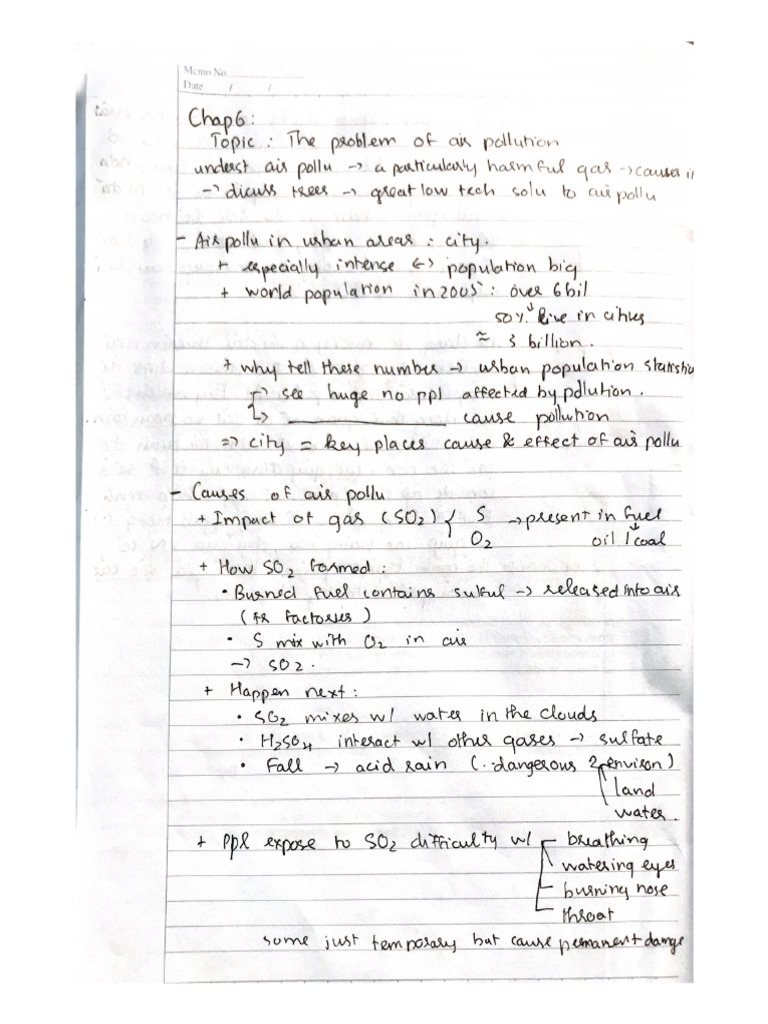 Memo No.
Date / /
Chap6:
Topic : The problem of air pollution
underst air pollu → a particularly harmful gas → causes it
→ dicuss trees → great low tech solu to air pollu
- Air pollu in urban areas : city.
+ especially intense ↔ population big
+ world population in 2005 : over 6 bil
↓
50% live in cities
≈ 3 billion.
+ why tell these number → urban population statistic
↱ see huge no ppl affected by pollution.
↳ __________ cause pollution
=> city = key places cause & effect of air pollu
- Causes of air pollu
+ Impact of gas (SO2) { S → present in fuel
O2 oil / coal
+ How SO2 formed :
• Burned fuel contains sulful → released into air
(fr factories)
• S mix with O2 in air
→ SO2.
+ Happen next :
• SO2 mixes w/ water in the clouds
• H2SO4 interact w/ other gases → sulfate
• Fall → acid rain (: dangerous 2 environ)
land
water.
+ Ppl expose to SO2 difficulty w/ breathing
watering eyes
burning nose
throat
some just temporary but cause permanent damge